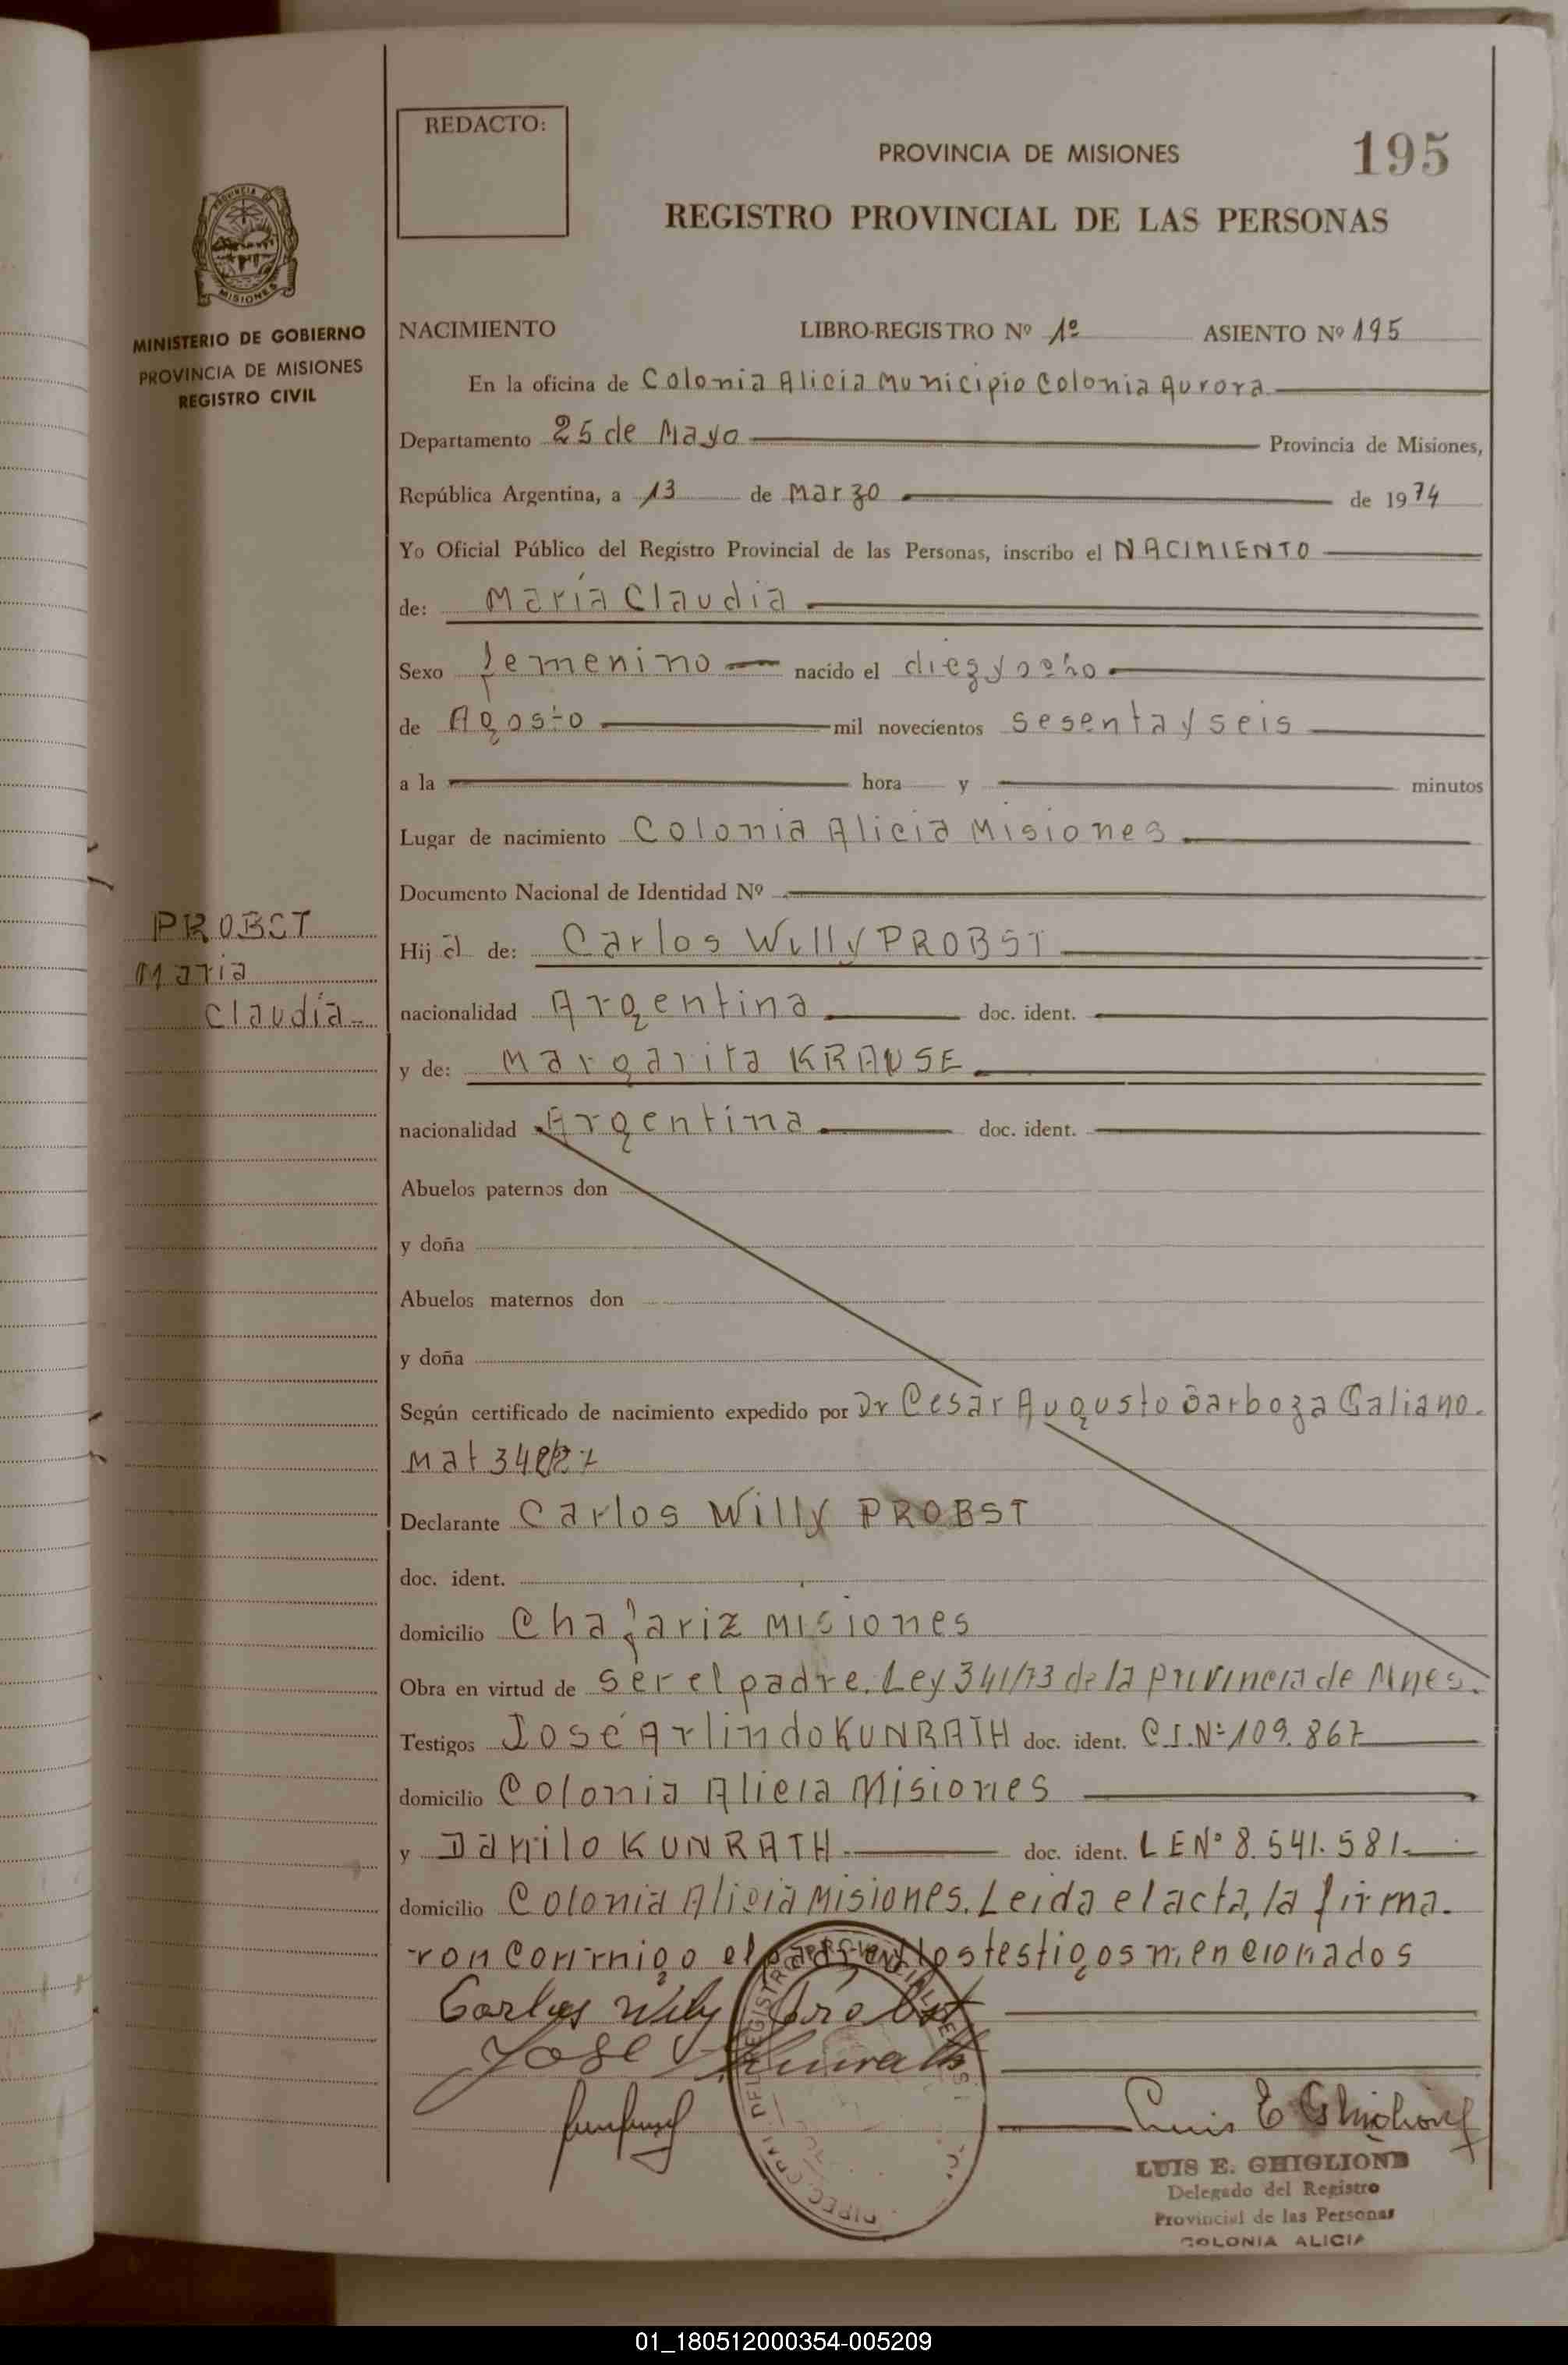 REDACTO:
PROVINCIA DE MISIONES
195
REGISTRO PROVINCIAL DE LAS PERSONAS
PROVINCIA DE
MISIONES
MINISTERIO DE GOBIERNO
PROVINCIA DE MISIONES
REGISTRO CIVIL
NACIMIENTO LIBRO-REGISTRO Nº 1º ASIENTO Nº 195
En la oficina de Colonia Alicia Municipio Colonia Aurora
Departamento 25 de Mayo Provincia de Misiones,
República Argentina, a 13 de Marzo de 1974
Yo Oficial Público del Registro Provincial de las Personas, inscribo el NACIMIENTO
de: María Claudia
Sexo femenino nacido el diez y ocho
de Agosto mil novecientos sesenta y seis
a la hora y minutos
Lugar de nacimiento Colonia Alicia Misiones
Documento Nacional de Identidad Nº
PROBST
Maria
Claudia
Hija de: Carlos Willy PROBST
nacionalidad Argentina doc. ident.
y de: Margarita KRAUSE
nacionalidad Argentina doc. ident.
Abuelos paternos don
y doña
Abuelos maternos don
y doña
Según certificado de nacimiento expedido por Dr Cesar Augusto Barboza Galiano.
Mat
Declarante Carlos Willy PROBST
doc. ident.
domicilio Chafariz Misiones
Obra en virtud de ser el padre. Ley 341/73 de la provincia de Mnes.
Testigos José Arlindo KUNRATH doc. ident. C.I.Nº 109.867
domicilio Colonia Alicia Misiones
y Danilo KUNRATH doc. ident. L E Nº 8.541.581
domicilio Colonia Alicia Misiones. Leida el acta, la firma.
ron conmigo el padre y los testigos mencionados
Carlos Wily Probst
Jose A Kunrath
Luis E Ghiglione
LUIS E. GHIGLIONE
Delegado del Registro
Provincial de las Personas
COLONIA ALICIA
01_180512000354-005209